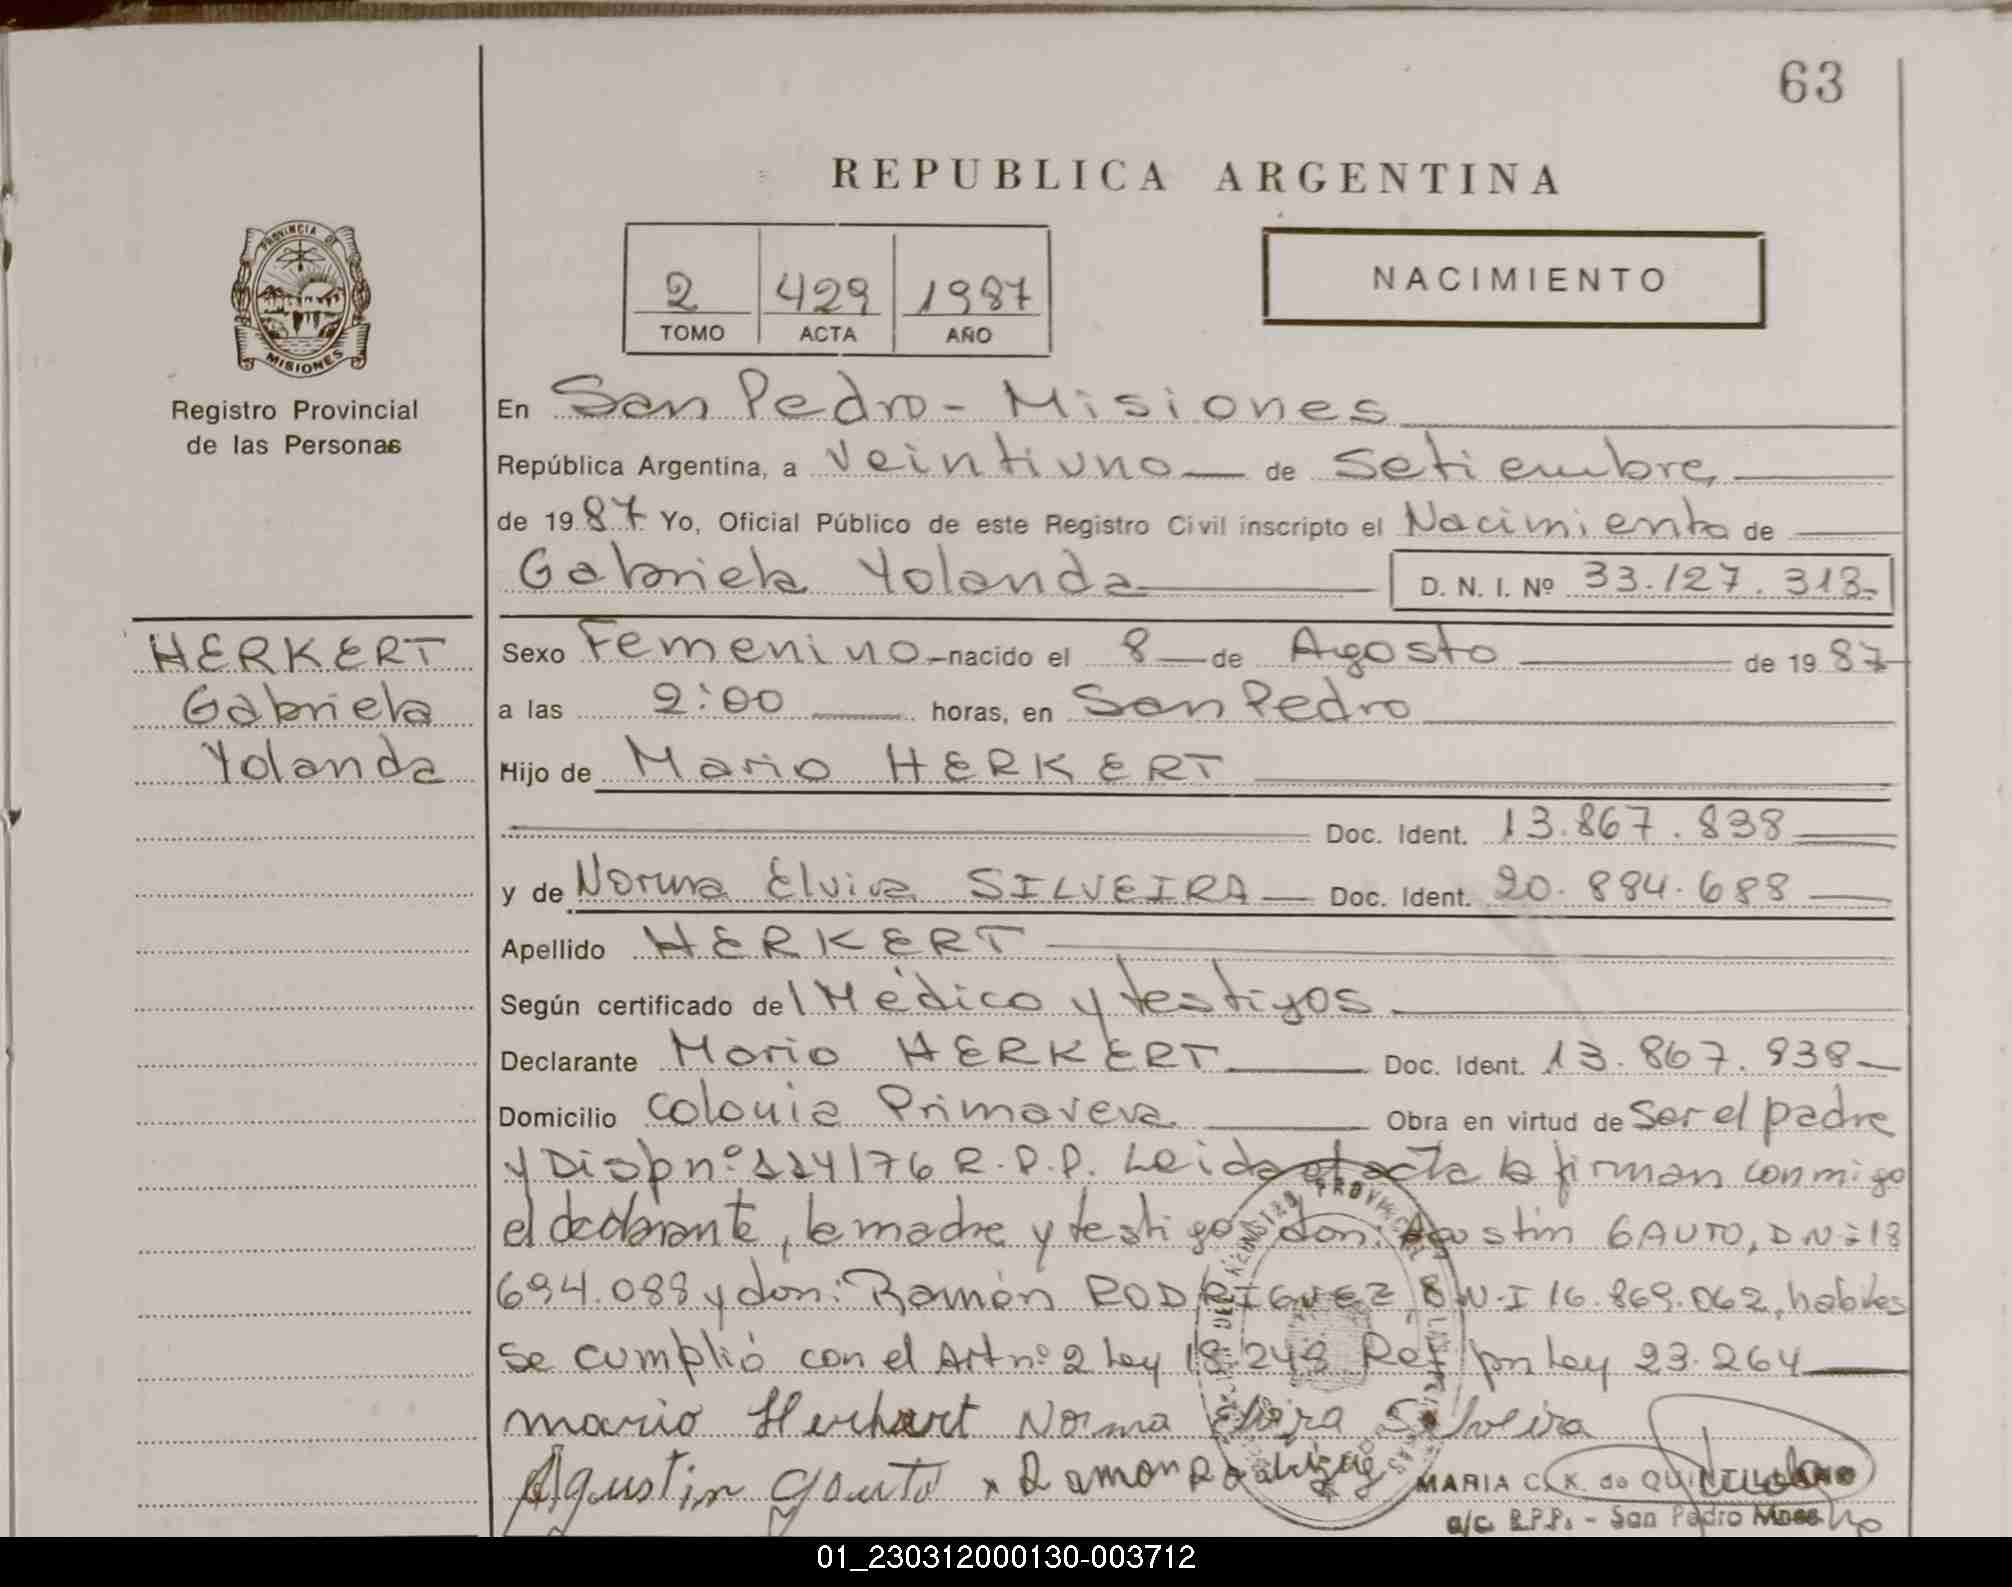 63
REPUBLICA ARGENTINA
PROVINCIA DE
MISIONES
Registro Provincial
de las Personas
2 429 1987
TOMO ACTA AÑO
NACIMIENTO
En San Pedro - Misiones
República Argentina, a veintiuno de Setiembre
de 1987 Yo, Oficial Público de este Registro Civil inscripto el Nacimiento de
Gabriela Yolanda D. N. I. Nº 33.127.313-
HERKERT
Gabriela
Yolanda
Sexo Femenino - nacido el 8 de Agosto de 1987
a las 2:00 horas, en San Pedro
Hijo de Mario HERKERT
Doc. Ident. 13.867.838
y de Norma Elvira SILVEIRA Doc. Ident. 20.884.688
Apellido HERKERT
Según certificado del Médico y testigos
Declarante Mario HERKERT Doc. Ident. 13.867.838
Domicilio Colonia Primavera Obra en virtud de Ser el padre
y Disp nº 114/76 R.P.P. Leida el acta la firman conmigo
el declarante, la madre y testigo don: Agostin GAUTO, DNI 18
694.088 y don: Ramón RODRIGUEZ D.N.I 16.869.062, habiles
se cumplió con el Art nº 2 Ley 18.248 Ref por Ley 23.264
mario Herkert Norma Elvira Silveira
Agustin Gauto Ramon Rodriguez
MARIA C. K. de QUINTILIANO
a/c R.P.P. - San Pedro Mnes
01_230312000130-003712